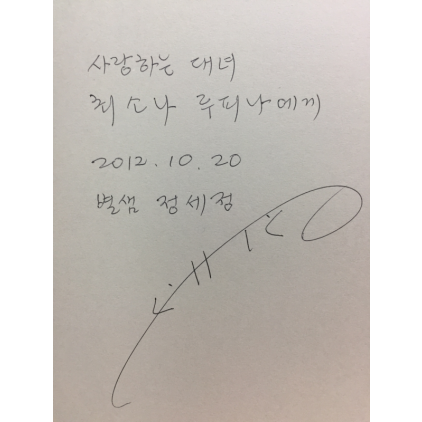 사랑하는 대녀
최소나 루피나에게
2012.10.20
별샘 정세정